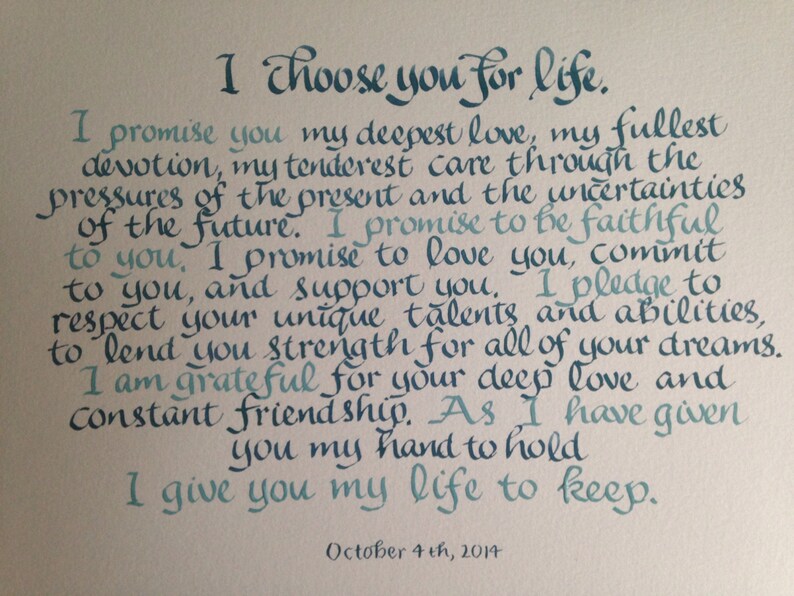 I choose you for life.
I promise you my deepest love, my fullest
devotion, my tenderest care through the
pressures of the present and the uncertainties
of the future. I promise to be faithful
to you. I promise to love you, commit
to you, and support you. I pledge to
respect your unique talents and abilities,
to lend you strength for all of your dreams.
I am grateful for your deep love and
constant friendship. As I have given
you my hand to hold
I give you my life to keep.
October 4th, 2014